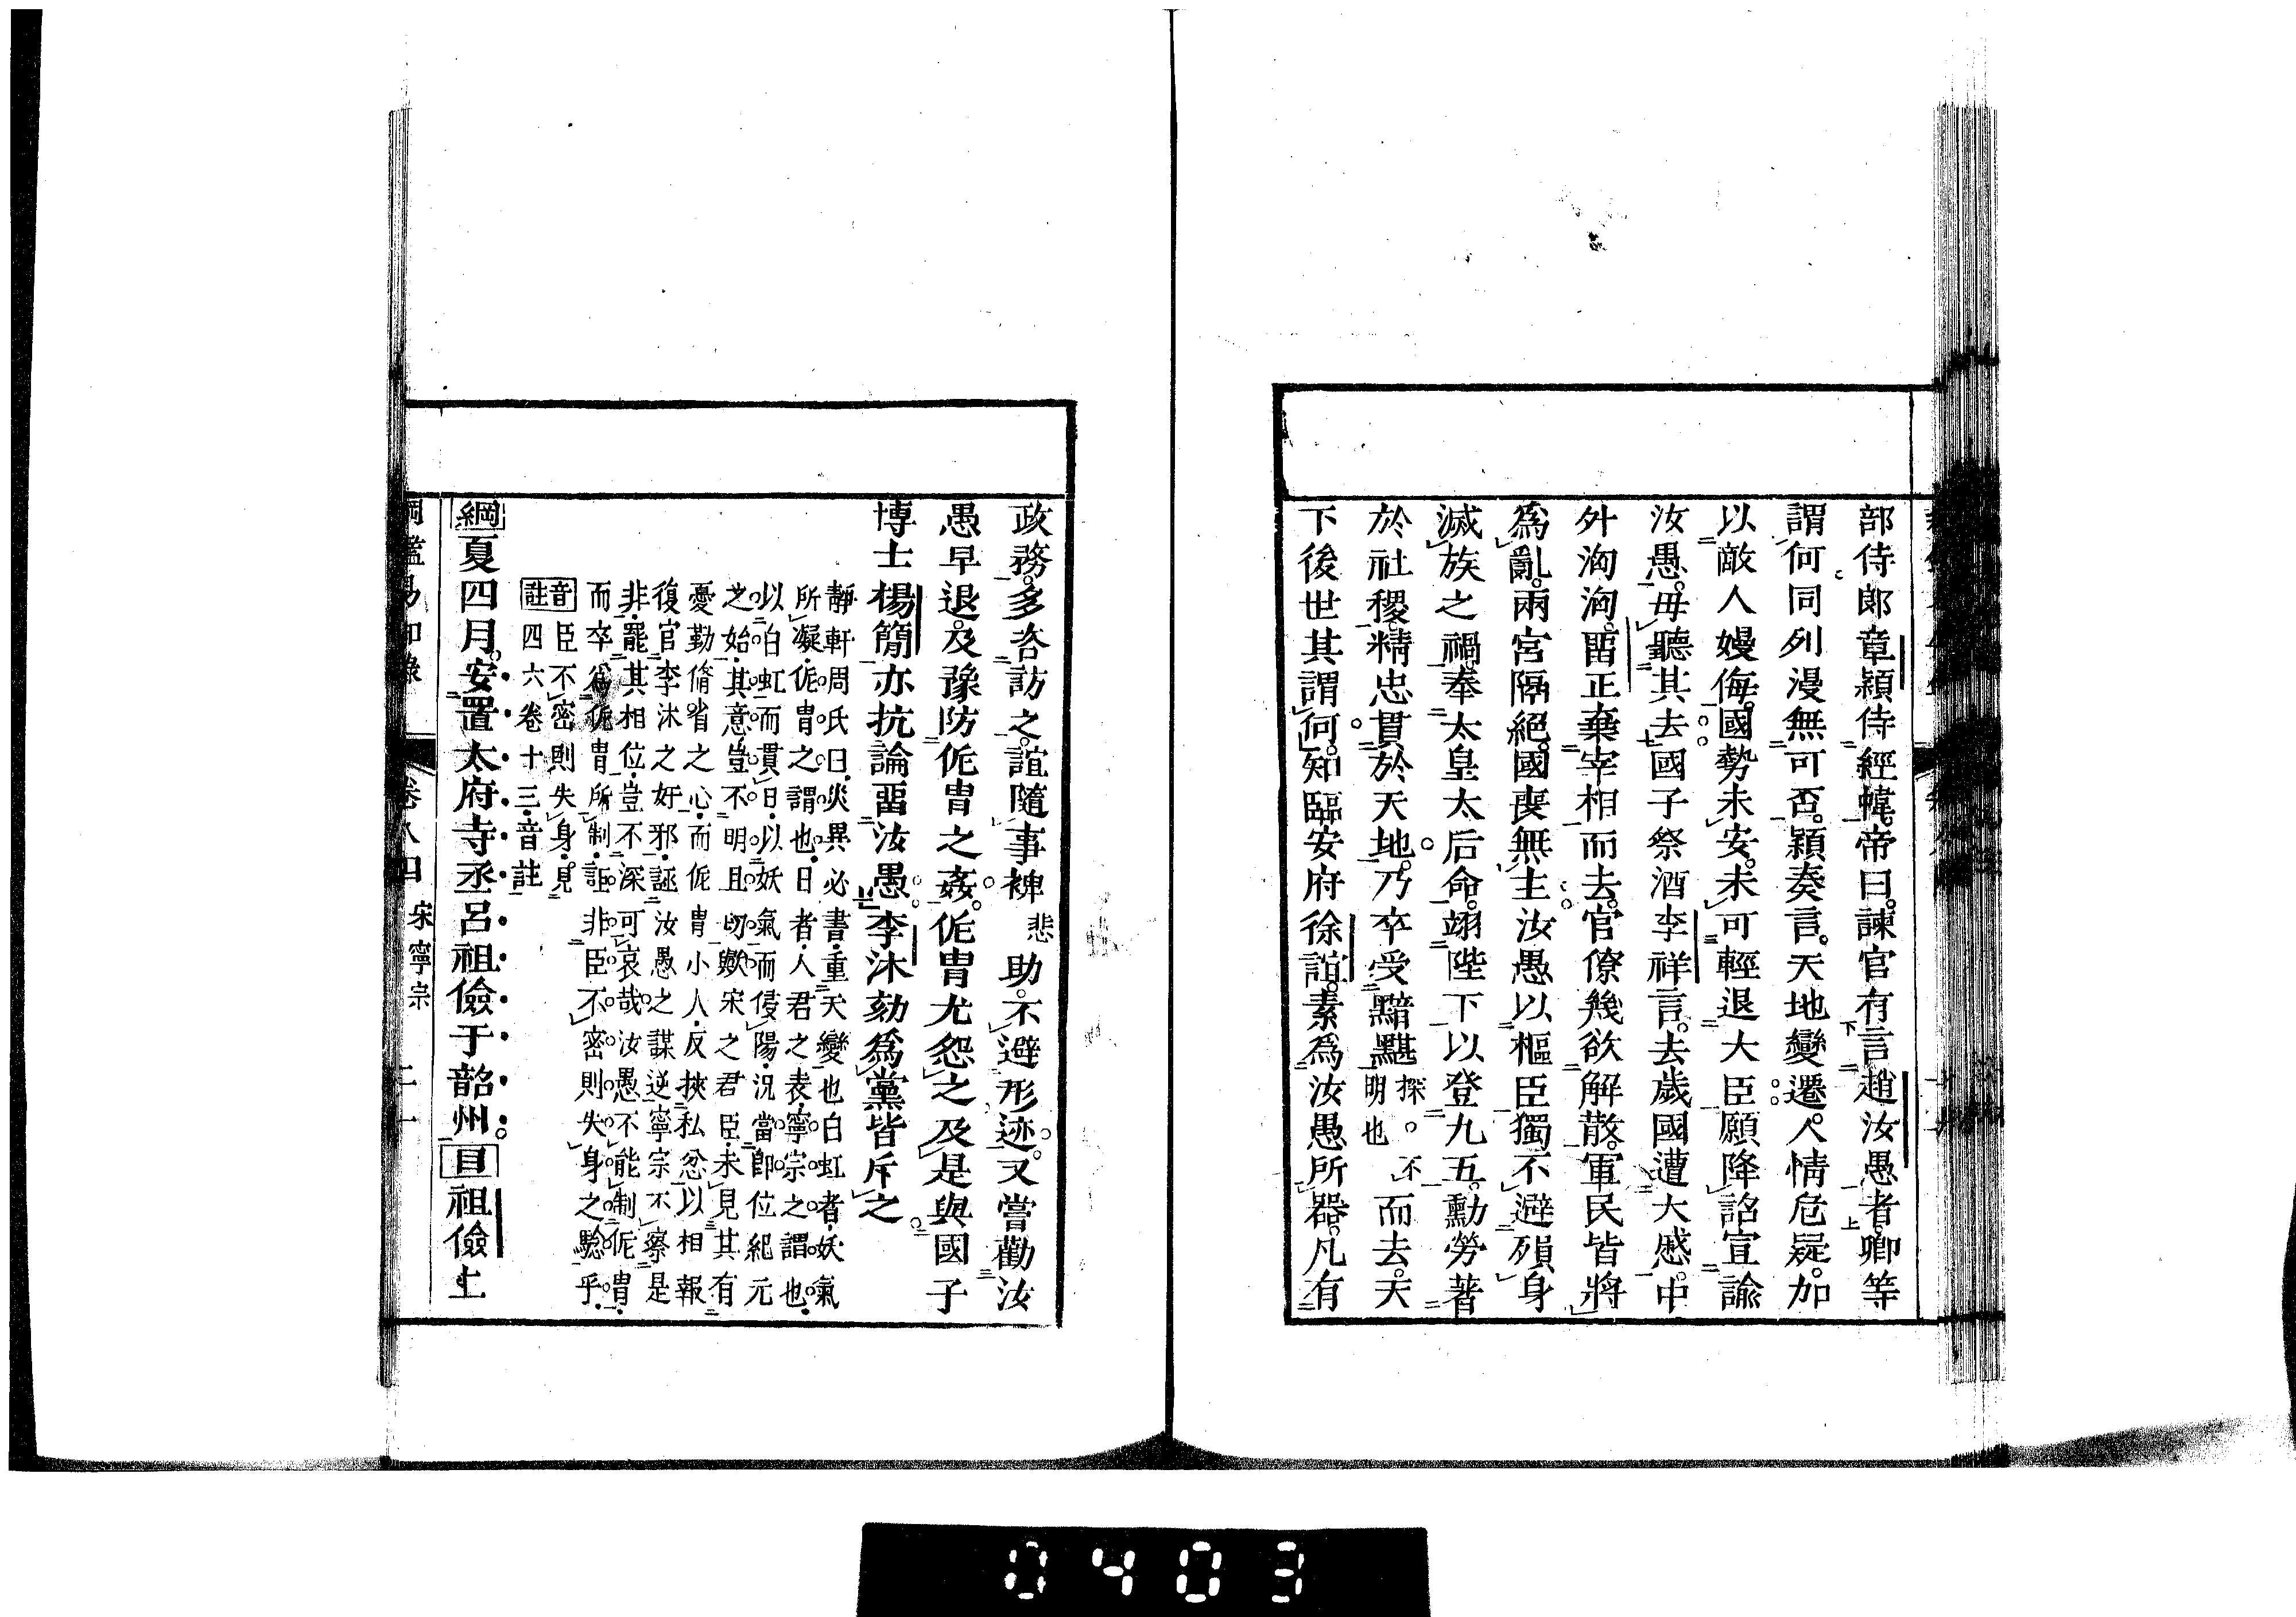 部侍郎章穎侍經幃帝曰諫官有言趙汝愚者卿等
謂何同列漫無可否穎奏言天地變遷人情危疑加
以敵人嫚侮國勢未安未可輕退大臣願降詔宣諭
汝愚毋聽其去國子祭酒李祥言去歲國遭大慼中
外洶洶畱正棄宰相而去官僚幾欲解散軍民皆將
為亂兩宮隔絕國喪無主汝愚以樞臣獨不避殞身
滅族之禍奉太皇太后命翊陛下以登九五勳勞著
於社稷精忠貫於天地乃卒受黯黮探不明也而去天
下後世其謂何知臨安府徐誼素為汝愚所器凡有
政務多咨訪之誼隨事裨悲助不避形迹又嘗勸汝
愚早退及豫防侂冑之姦侂冑尤怨之及是與國子
博士楊簡亦抗論畱汝愚李沐劾為黨皆斥之
靜軒周氏曰災異必書重天變也白虹者妖氣
所凝侂冑之謂也日者人君之表寧宗之謂也
以白虹而貫日以妖氣而侵陽況當卽位紀元
之始其意豈不明且切歟宋之君臣未見其有
憂勤脩省之心而侂冑小人反挾私忿以相報
復官李沐之奸邪誣汝愚之謀逆寧宗不察是
非罷其相位豈不深可哀哉汝愚不能制侂冑
而卒為侂冑所制詎非臣不密則失身之驗乎
音註臣不密則失身見
四六卷十三音註
綱夏四月安置太府寺丞呂祖儉于韶州目祖儉上
綱鑑易知錄 卷八四 宋寧宗 二十一
0403